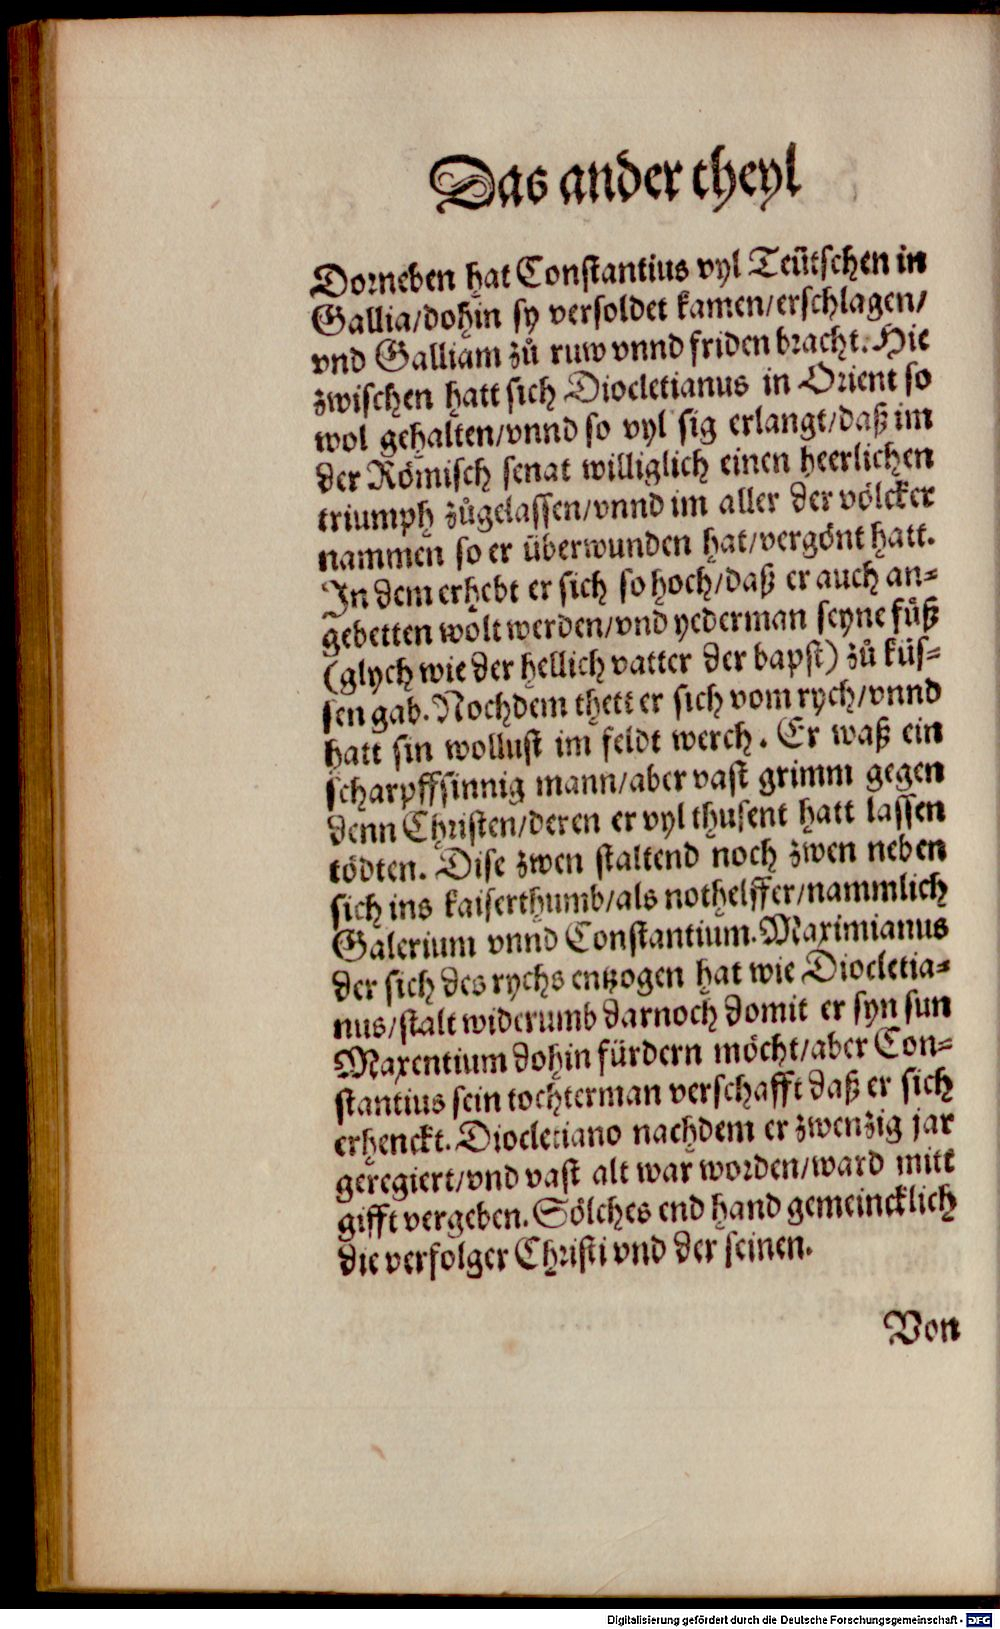 Das ander theyl
Dorneben hat Constantius vyl Teütschen in
Gallia/dohin sy versoldet kamen/erschlagen/
vnd Galliam zů ruw vnnd friden bracht. Hie
zwischen hatt sich Diocletianus in Orient so
wol gehalten/vnnd so vyl sig erlangt/daß im
der Römisch senat williglich einen heerlichen
triumph zůgelassen/vnnd im aller der völcker
nammen so er überwunden hat/vergönt hatt.
In dem erhebt er sich so hoch/daß er auch an-
gebetten wolt werden/vnd yederman seyne füß
(glych wie der hellich vatter der bapst) zů küs-
sen gab. Nochdem thett er sich vom rych/vnnd
hatt sin wollust im feldt werch. Er waß ein
scharpffsinnig mann/aber vast grimm gegen
denn Christen/deren er vyl thusent hatt lassen
tödten. Dise zwen staltend noch zwen neben
sich ins kaiserthumb/als nothelffer/nammlich
Galerium vnnd Constantium. Maximianus
der sich des rychs entzogen hat wie Diocletia-
nus/stalt widerumb darnoch domit er syn sun
Maxentium dohin fürdern möcht/aber Con-
stantius sein tochterman verschafft daß er sich
erhenckt. Diocletiano nachdem er zwenzig jar
geregiert/vnd vast alt war worden/ward mitt
gifft vergeben. Sölches end hand gemeincklich
die verfolger Christi vnd der seinen.
Von
Digitalisierung gefördert durch die Deutsche Forschungsgemeinschaft - DFG